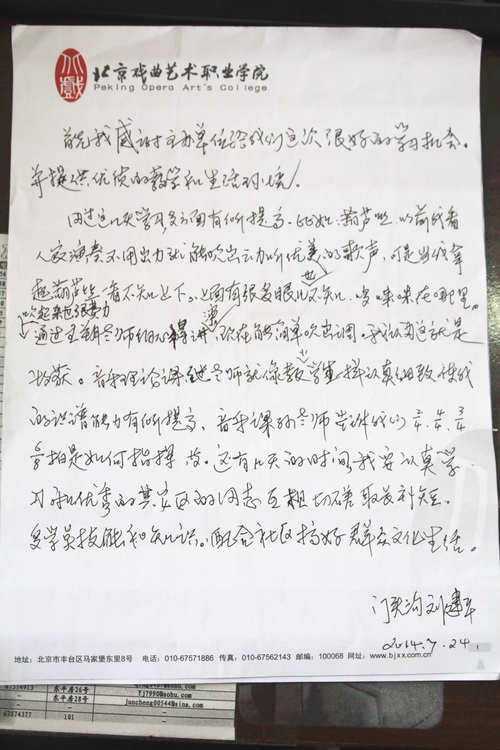 北戏
北京戏曲艺术职业学院
Peking Opera Art's College
首先我感谢主办单位给我们这次很好的学习机会。
并提供优质的教学和生活环境!
通过这几天学习,各方面有所提高。比如:葫芦丝,以前我看
人家演奏不用出力就能吹出动听优美的歌声,可是当我拿
起葫芦丝一看不知上下。上面有很多眼也不知
吹起来也很费力
通过王老师细心讲,现在能简单吹出调。我认为这就是
收获。音乐理论课老师就像教学生一样认真细致,使我
的识谱能力有所提高,音乐课孙老师告诉我们 2/4、4/4、3/4
6/8 拍是如何指挥的。还有几天的时间,我要认真学
习和优秀的其它区的同志互相切磋取长补短。
多学点技能和知识。配合社区搞好群众文化生活。
门头沟刘建平
2014.7.24
地址:北京市丰台区马家堡东里8号 电话:010-67571886 传真:010-67562143 邮编:100068 网址:www.bjxx.com.cn
67574913 东平房26号 Yj7990@sohu.com
东平房28号 juncheng00544@sina.com
67574377 101